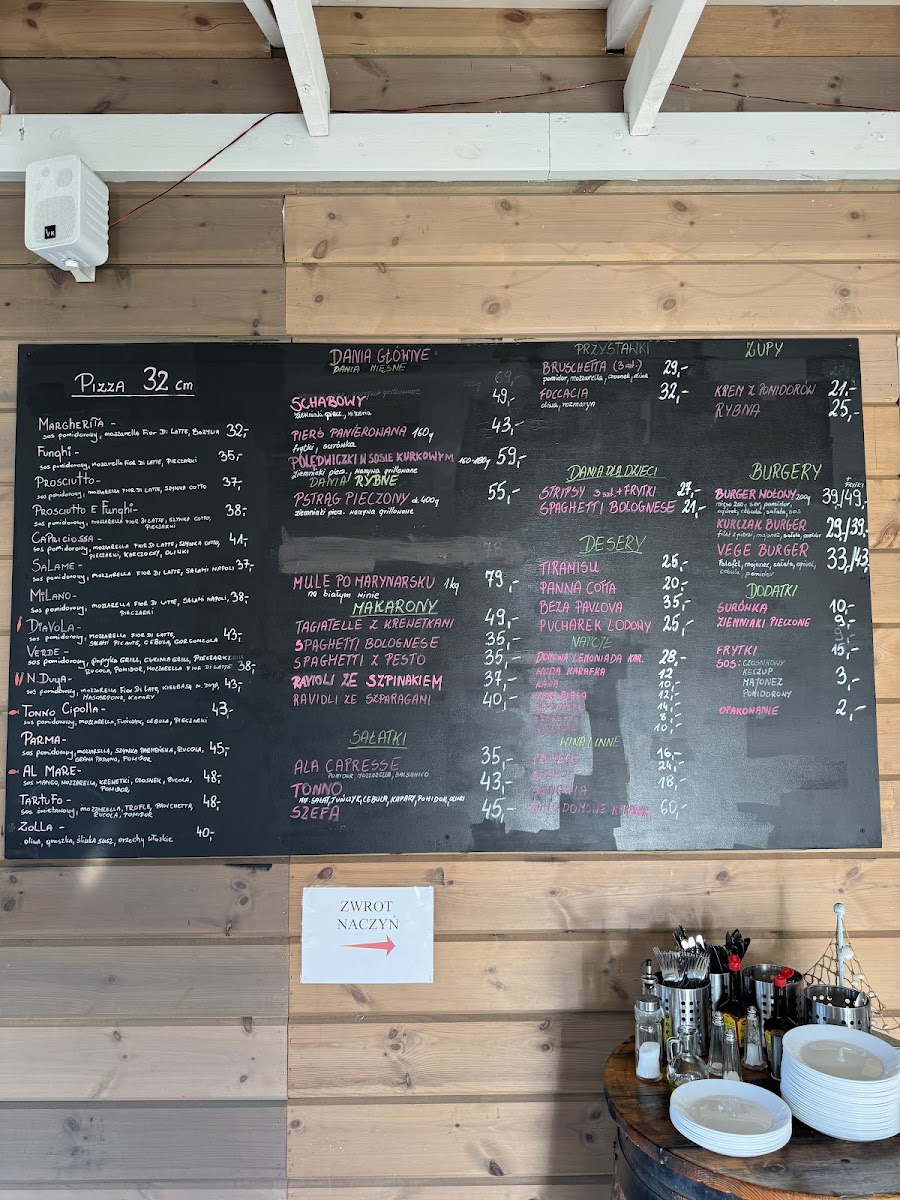 VK
PIZZA 32 cm
MARGHERITA - 32,-
SOS POMIDOROWY, MOZZARELLA FIOR DI LATTE, BAZYLIA
FUNGHI - 35,-
SOS POMIDOROWY, MOZZARELLA FIOR DI LATTE, PIECZARKI
PROSCIUTTO - 37,-
SOS POMIDOROWY, MOZZARELLA FIOR DI LATTE, SZYNKA COTTO
PROSCIUTTO E FUNGHI - 38,-
SOS POMIDOROWY, MOZZARELLA FIOR DI LATTE, SZYNKA COTTO,
PIECZARKI
CAPRICIOSSA - 41,-
SOS POMIDOROWY, MOZZARELLA FIOR DI LATTE, SZYNKA COTTO,
PIECZARKI, KARCZOCHY, OLIWKI
SALAME - 37,-
SOS POMIDOROWY, MOZZARELLA FIOR DI LATTE, SALAMI NAPOLI
MILANO - 38,-
SOS POMIDOROWY, MOZZARELLA FIOR DI LATTE, SALAMI NAPOLI,
PIECZARKI
DIAVOLA - 43,-
SOS POMIDOROWY, MOZZARELLA FIOR DI LATTE,
SALAMI PICANTE, CEBULA, GORGONZOLA
VERDE - 38,-
SOS POMIDOROWY, PAPRYKA GRILL, CUKINIA GRILL, PIECZARKI
RUCOLA, POMIDOR, MOZZARELLA FIOR DI LATTE
N.DUJA - 43,-
SOS POMIDOROWY, MOZZARELLA FIOR DI LATTE, KIEŁBASA N.DUJA,
MASCARPONE, KAPARY
TONNO CIPOLLA - 43,-
SOS POMIDOROWY, MOZZARELLA, TUŃCZYK, CEBULA, PIECZARKI
PARMA - 45,-
SOS POMIDOROWY, MOZZARELLA, SZYNKA PARMEŃSKA, RUCOLA,
GRANA PADANO, POMIDOR
AL MARE - 48,-
SOS MANGO, MOZZARELLA, KREWETKI, CZOSNEK, RUCOLA,
POMIDOR
TARTUFO - 48,-
SOS ŚMIETANOWY, MOZZARELLA, TRUFLE, PANCHETTA,
RUCOLA, POMIDOR
ZOLLA - 40,-
OLIWA, GRUSZKA, ŚLIWKA SUSZ, ORZECHY WŁOSKIE
DANIA GŁÓWNE
DANIA MIĘSNE
69,-
SCHABOWY 49,-
ziemniaki piecz., mizeria
PIERŚ PANIEROWANA 160g 43,-
frytki, surówka
POLĘDWICZKI W SOSIE KURKOWYM 160-180g 59,-
ziemniaki piecz. warzywa grillowane
DANIA RYBNE
PSTRĄG PIECZONY od 400g 55,-
ziemniaki piecz. warzywa grillowane
78
MULE PO MARYNARSKU 1kg 79,-
na białym winie
MAKARONY
TAGIATELLE Z KREWETKAMI 49,-
SPAGHETTI BOLOGNESE 35,-
SPAGHETTI Z PESTO 35,-
RAVIOLI ZE SZPINAKIEM 37,-
RAVIOLI ZE SZPARAGAMI 40,-
SAŁATKI
ALA CAPRESSE 35,-
POMIDOR MOZZARELLA, BALSAMICO
TONNO 43,-
MIX SAŁAT, TUŃCZYK, CEBULA, KAPARY, POMIDOR, OLIWKI
SZEFA 45,-
PRZYSTAWKI
BRUSCHETTA (3 szt.) 29,-
pomidor, mozzarella, czosnek, oliwa
FOCCACIA 32,-
oliwa, rozmaryn
DANIA DLA DZIECI
STRIPSY 3 szt. + FRYTKI 27,-
SPAGHETTI BOLOGNESE 21,-
DESERY
TIRAMISU 25,-
PANNA COTTA 20,-
BEZA PAVLOVA 35,-
PUCHAREK LODOWY 25,-
NAPOJE
DOMOWA LEMONIADA KAR. 28,-
WODA KARAFKA 12
KAWA 10,-
12,-
14,-
8,-
10,-
WINA I INNE
16,-
24,-
18,-
WINO DOMOWE KARAFKA 60,-
ZUPY
KREM Z POMIDORÓW 21,-
RYBNA 25,-
BURGERY
+ FRYTKI
BURGER WOŁOWY 200g 39/49,-
mięso 200g ser, pomidor,
ogórek, cebula, sałata, sos
KURCZAK BURGER 29/39,-
filet z piersi, majonez, sałata, pomidor
VEGE BURGER 33/43
Falafel, majonez, sałata, ogórek,
cebula, pomidor
DODATKI
SURÓWKA 10,-
ZIEMNIAKI PIECZONE 9,-
FRYTKI 15,-
SOS: CZOSNKOWY
KECZUP 3,-
MAJONEZ
POMIDOROWY
OPAKOWANIE 2,-
ZWROT
NACZYŃ